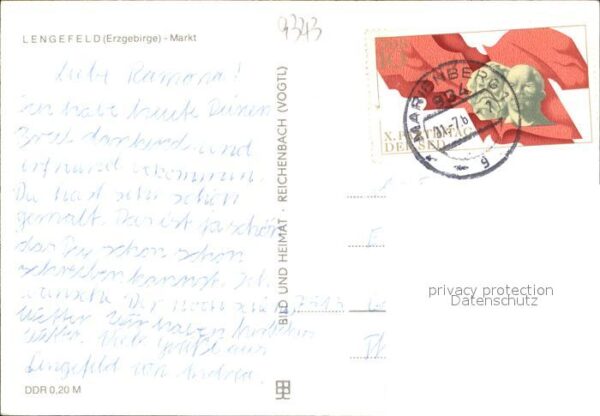 9343
LENGEFELD (Erzgebirge) - Markt
Liebe Ramona!
ich habe heute Deinen
Brief dankend und
erfreund bekommen.
Du hast sehr schön
gemalt. Das ist ja schön
das Du schon schön
schreiben kannst. Ich
wünsche Dir noch schönes
Wetter. Wir haben
Wetter. Viele Grüße aus
Lengefeld von Andrea.
DDR 0,20 M
BILD UND HEIMAT · REICHENBACH (VOGTL)
MARIENBERG
934
-7.76
g
DDR
10
X. PARTEITAG
DER SED
7313
privacy protection
Datenschutz